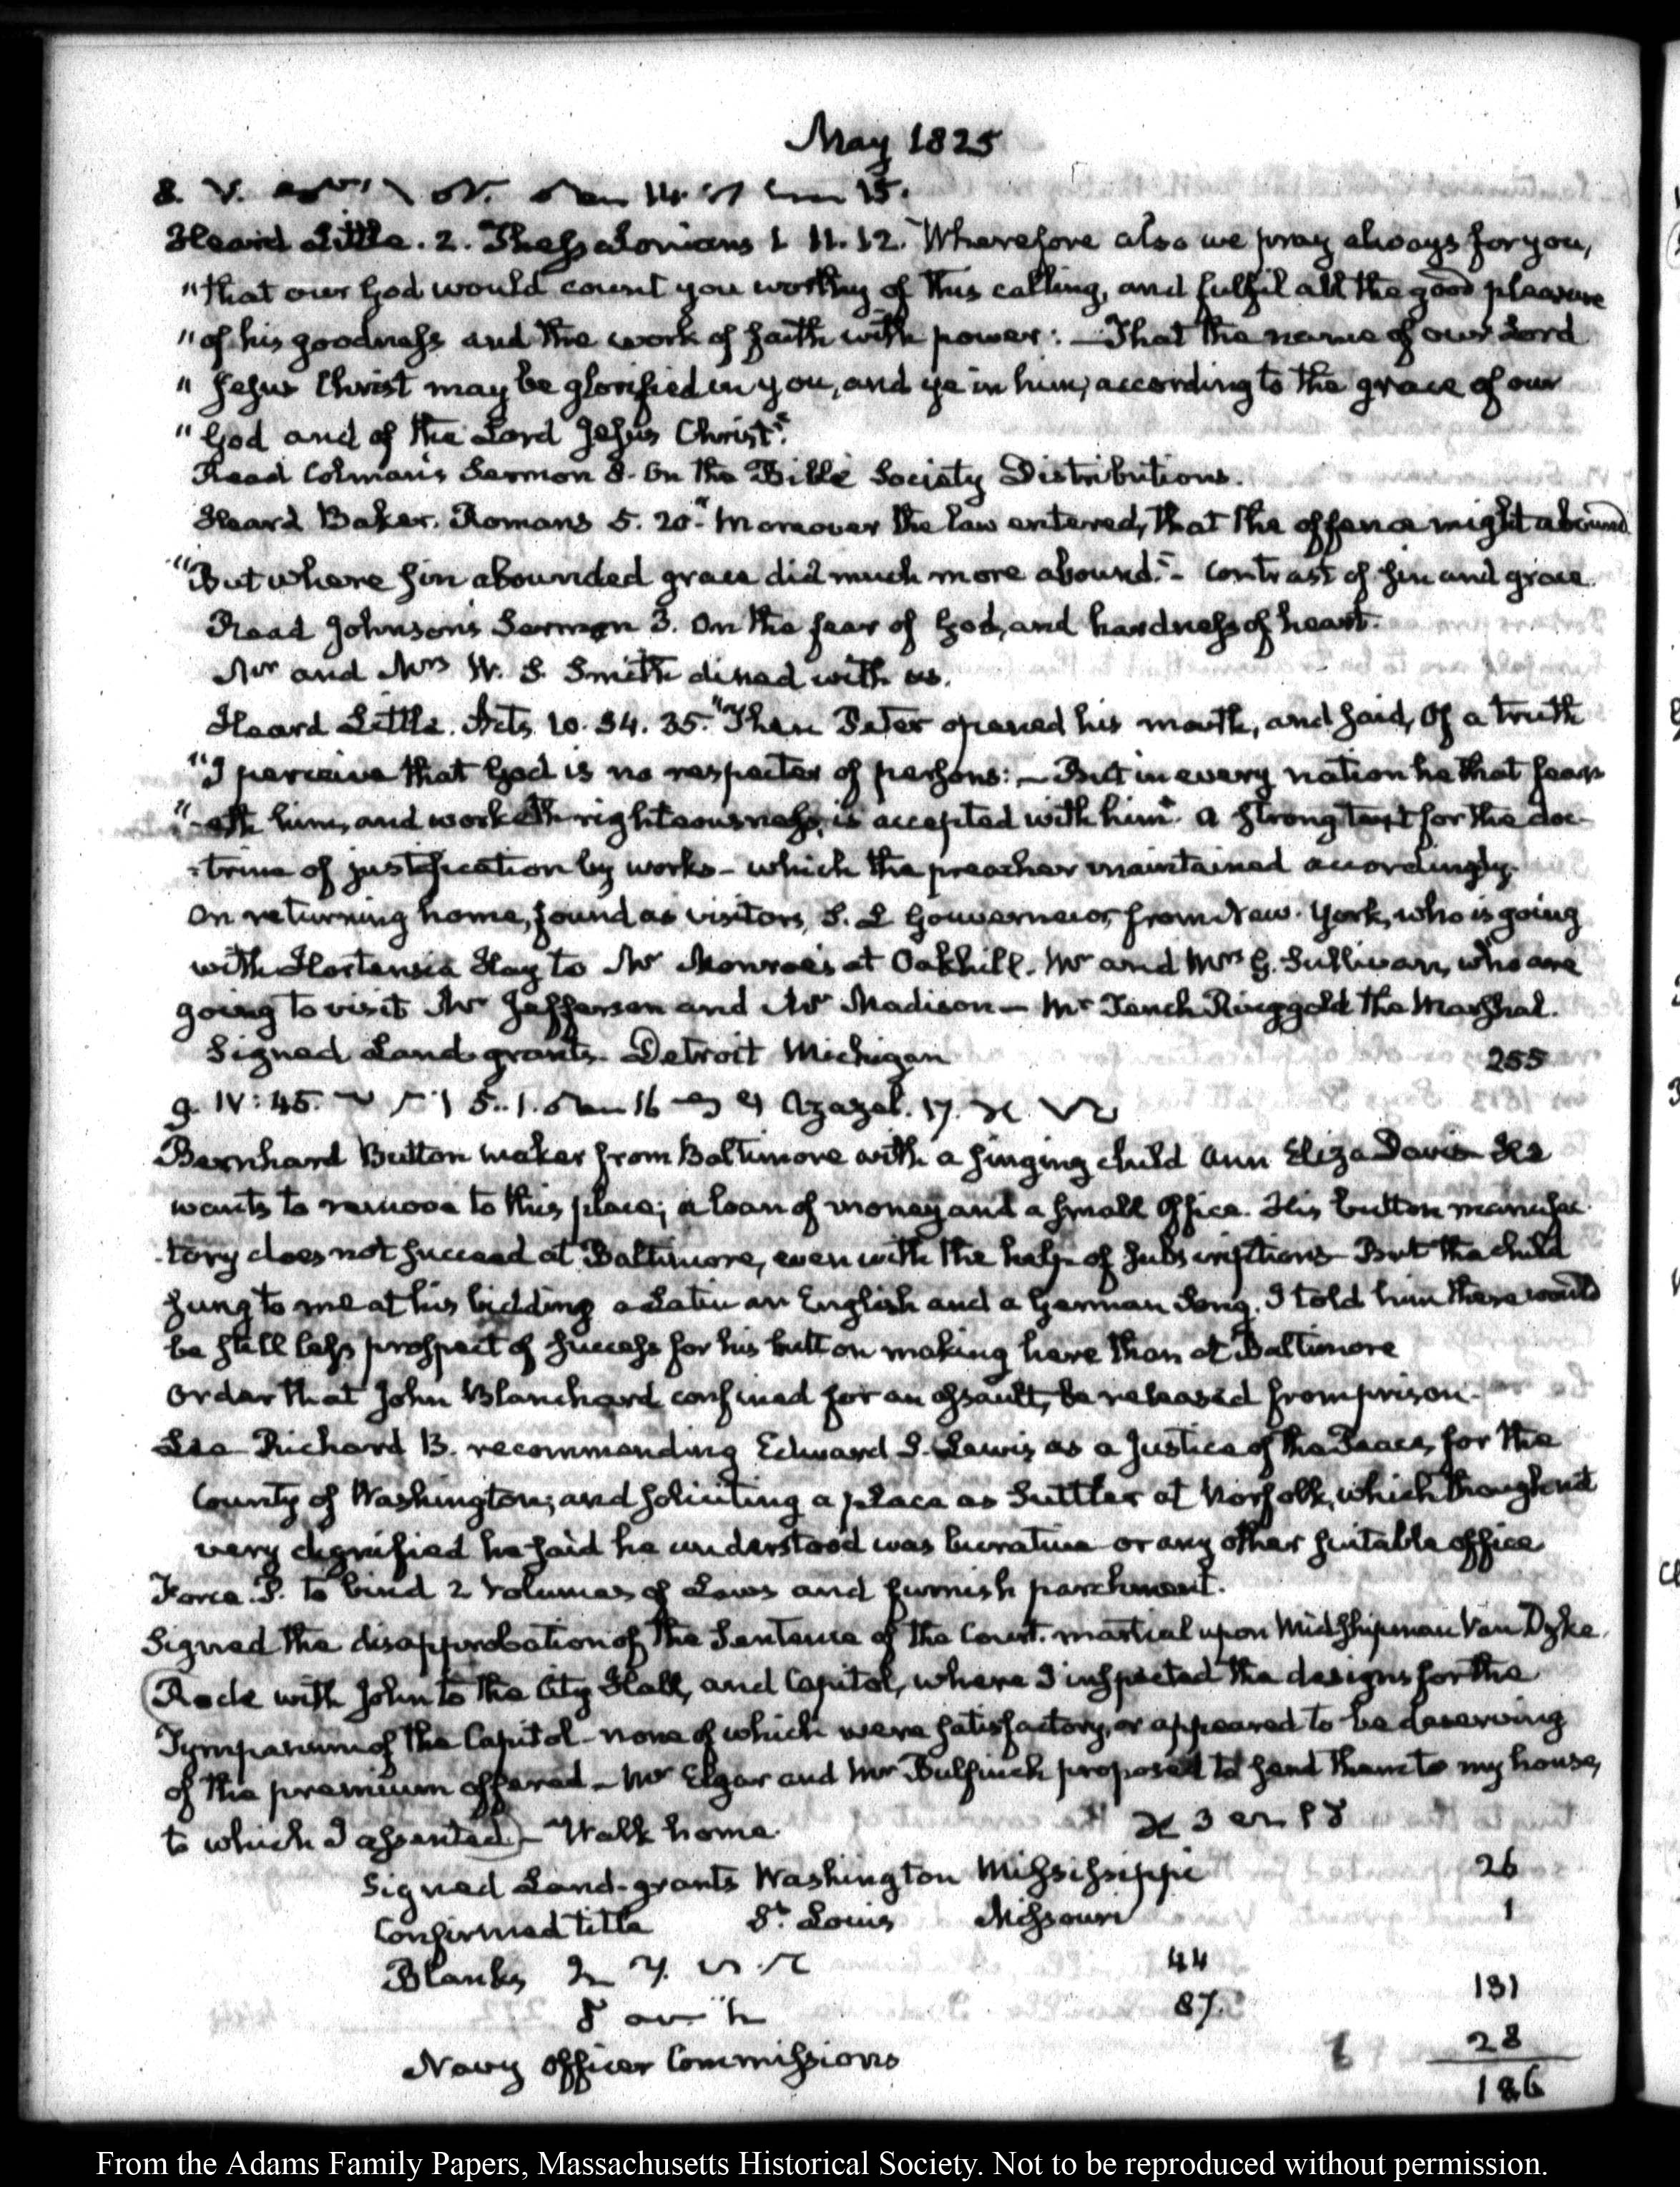 May 1825
8. V. 14. 15.
Heard Little. 2. Thessalonians 1 11. 12. "Wherefore also we pray always for you,
"that our God would count you worthy of this calling, and fulfil all the good pleasure
"of his goodness and the work of faith with power: — That the name of our Lord
"Jesus Christ may be glorified in you, and ye in him, according to the grace of our
"God and of the Lord Jesus Christ".
Read Colman's Sermon 8. On the Bible Society Distributions.
Heard Baker. Romans 5. 20. "Moreover the law entered, that the offence might abound
"But where sin abounded grace did much more abound." - Contrast of sin and grace.
Read Johnson's Sermon 3. On the fear of God, and hardness of heart.
Mr and Mrs W. S. Smith dined with us.
Heard Little. Acts, 10. 34. 35. "Then Peter opened his mouth, and said, Of a truth
"I perceive that God is no respecter of persons: — But in every nation he that fear-
"-eth him, and worketh righteousness, is accepted with him" A strong text for the doc-
-trine of justification by works - which the preacher maintained accordingly.
On returning home, found as visitors, S. L Gouverneur, from New-York, who is going
with Hortensia Hay to Mr Monroe's at Oakhill. Mr and Mrs G. Sullivan, who are
going to visit Mr Jefferson and Mr Madison — Mr Tench Ringgold the Marshal.
Signed Land-grants. Detroit Michigan 255
9. IV: 45. 5. 1. 16 Azazel. 17.
Bernhard Button maker from Baltimore with a singing child Ann Eliza Davis He
wants to remove to this place; a loan of money and a small Office. His button manufac-
-tory does not succeed at Baltimore, even with the help of subscriptions But the child
sung to me at his bidding a Latin an English and a German Song. I told him there would
be still less prospect of success for his button making here than at Baltimore
Order that John Blanchard confined for an assault, be released from prison.
Lee Richard B. recommending Edward S. Lewis as a Justice of the Peace, for the
County of Washington; and soliciting a place as Suttler at Norfolk, which though not
very dignified he said he understood was lucrative or any other suitable office
Force. P. to bind 2 Volumes of Laws and furnish parchment.
Signed the disapprobation of the Sentence of the Court-martial upon Midshipman Van Dyke.
(Rode with John to the City Hall, and Capitol, where I inspected the designs for the
Tympanum of the Capitol - none of which were satisfactory, or appeared to be deserving
of the premium offered — Mr Elgar and Mr Bulfinch proposed to send them to my house,
to which I assented) - Walk home. 3
Signed Land-grants Washington Mississippi 26
Confirmed title St. Louis Missouri 1
Blanks 44
87. 131
Navy Officer Commissions 28
186
From the Adams Family Papers, Massachusetts Historical Society. Not to be reproduced without permission.